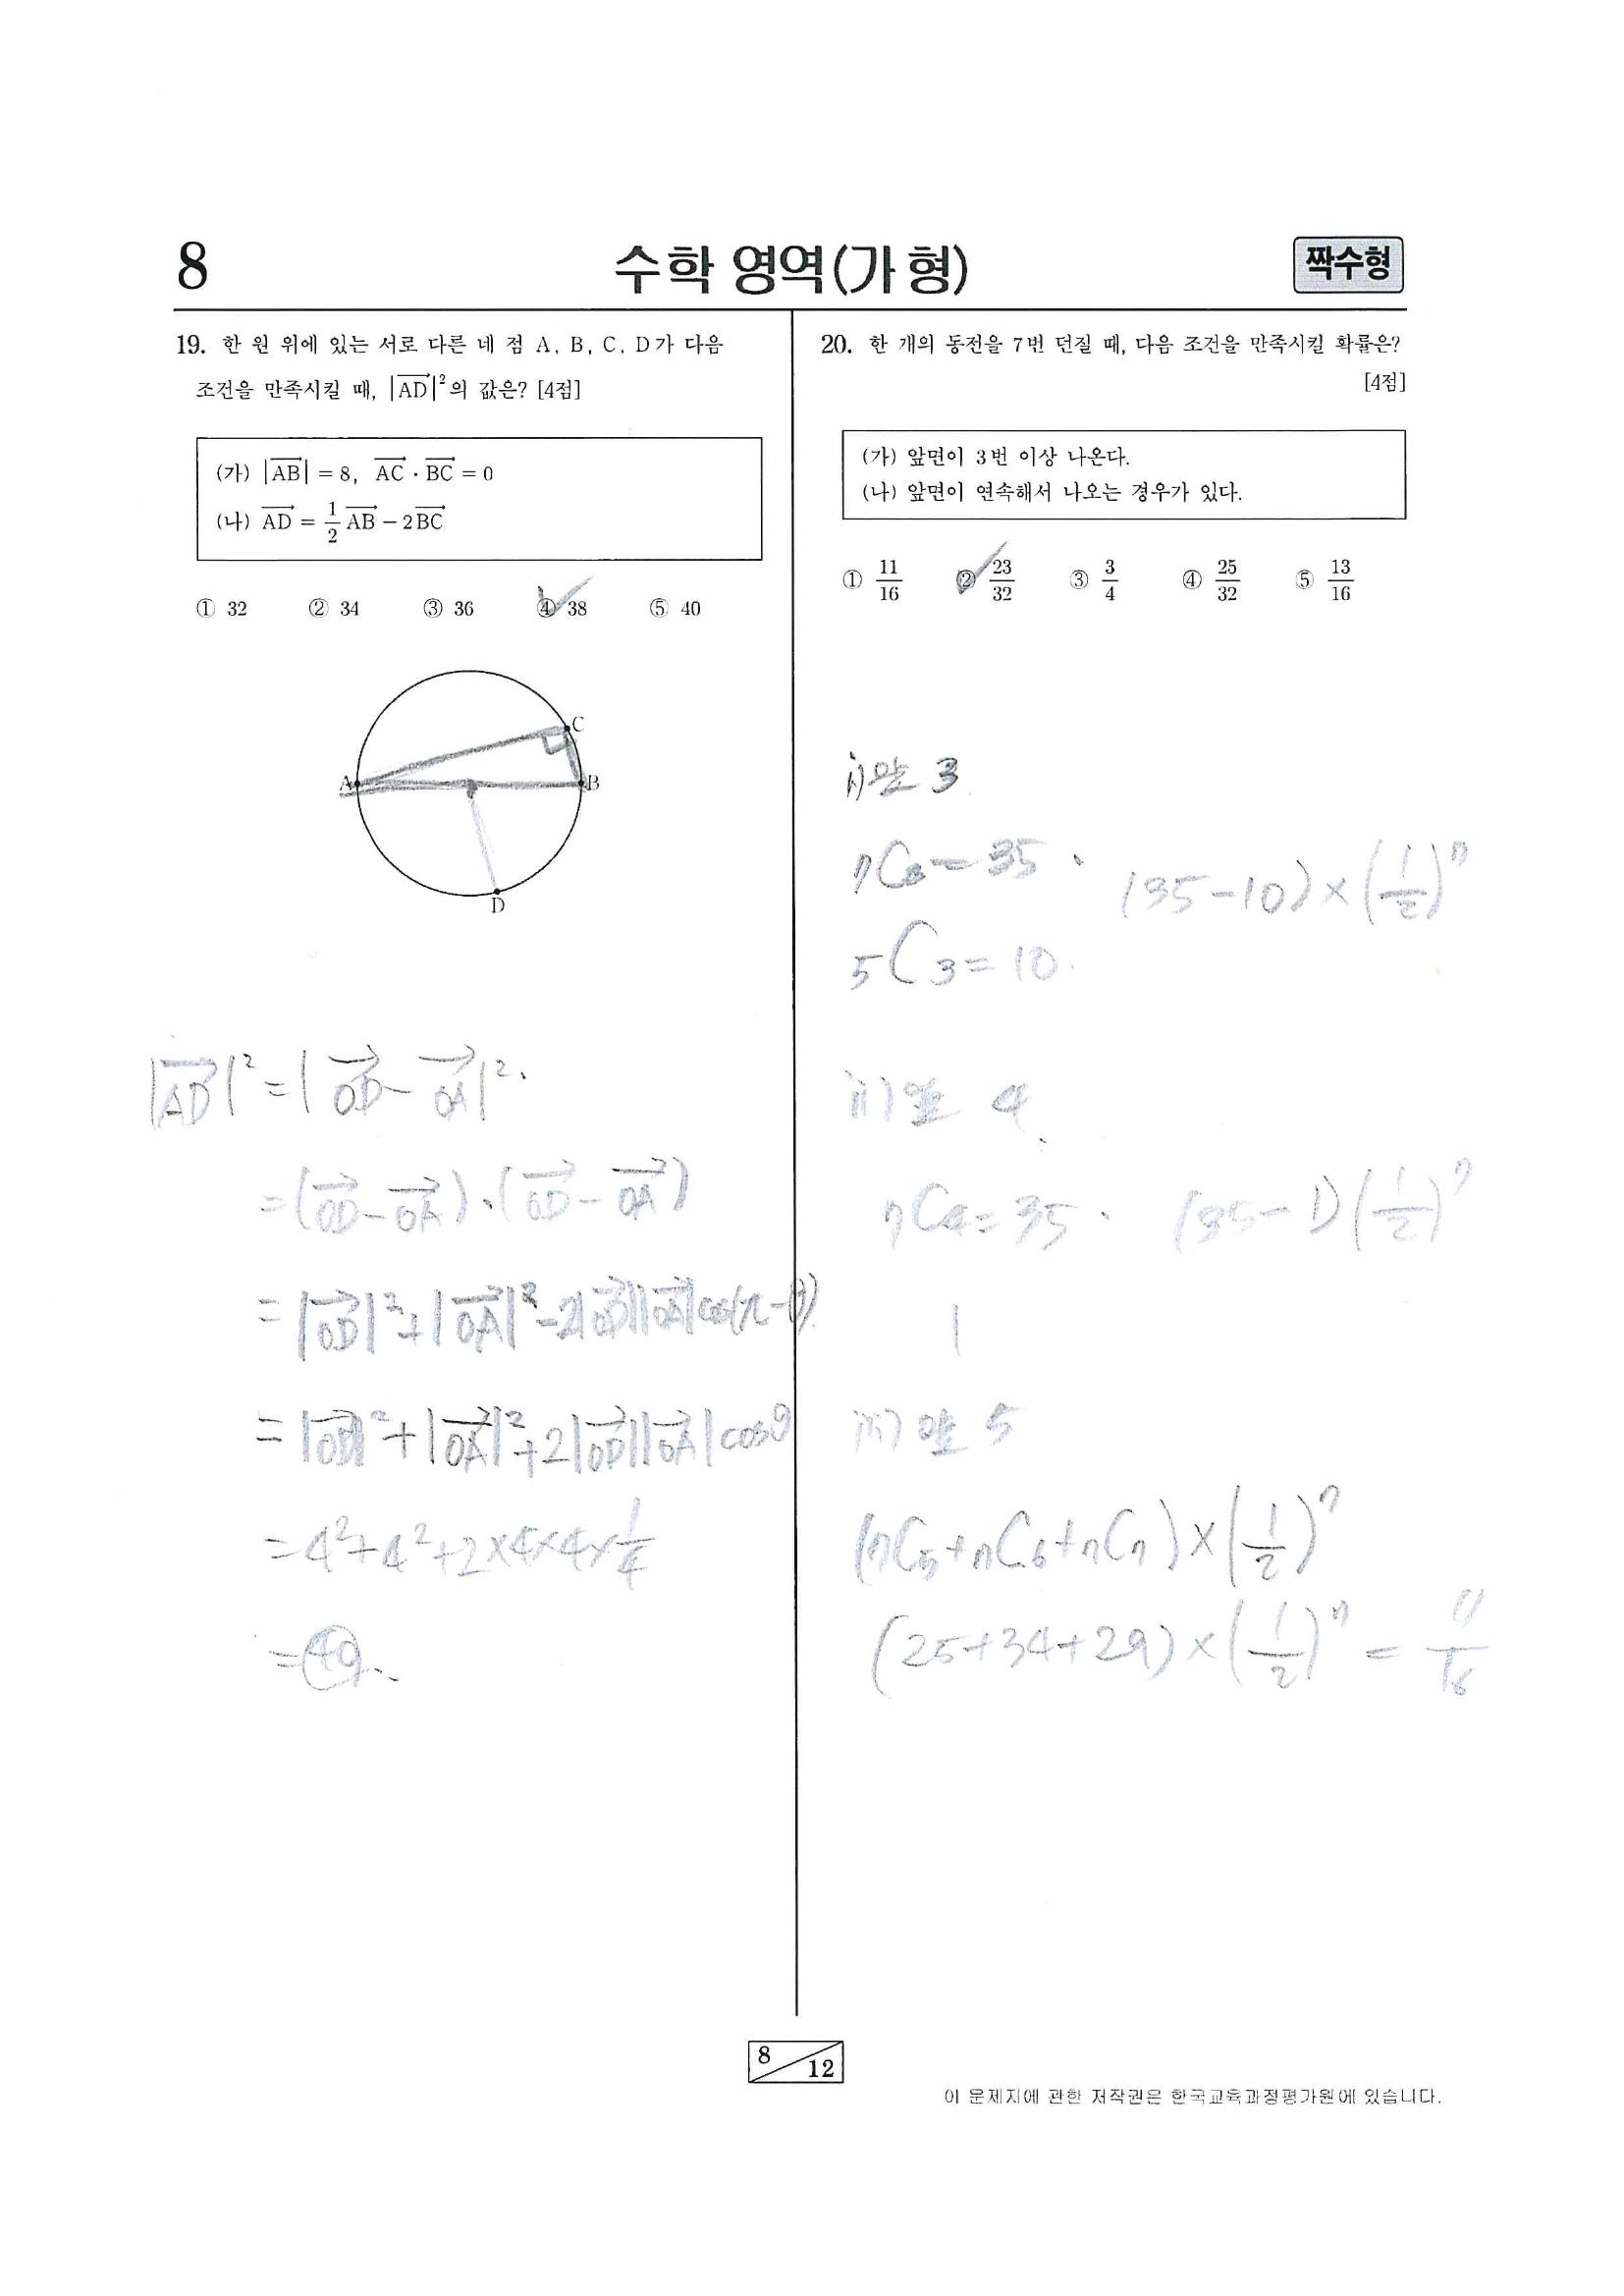 8
수학 영역(가 형)
짝수형
19. 한 원 위에 있는 서로 다른 네 점 A, B, C, D가 다음
조건을 만족시킬 때, |AD|²의 값은? [4점]
(가) |AB| = 8, AC · BC = 0
(나) AD = 1/2 AB − 2BC
① 32 ② 34 ③ 36 ④ 38 ⑤ 40
C
A
B
D
|AD|² = |OD − OA|².
= (OD − OA)·(OD − OA)
= |OD|² + |OA|² − 2|OD||OA|cos(π−θ)
= |OD|² + |OA|² + 2|OD||OA|cosθ
= 4² + 4² + 2×4×4×1/4
= 40.
20. 한 개의 동전을 7번 던질 때, 다음 조건을 만족시킬 확률은?
[4점]
(가) 앞면이 3번 이상 나온다.
(나) 앞면이 연속해서 나오는 경우가 있다.
① 11/16 ② 23/32 ③ 3/4 ④ 25/32 ⑤ 13/16
i) 앞 3
7C3 = 35 · (35−10)×(1/2)⁷
5C3 = 10.
ii) 앞 4
7C4 = 35 · (35−1)(1/2)⁷
1
iii) 앞 5
(7C5+7C6+7C7)×(1/2)⁷
(25+34+29)×(1/2)⁷ = 11/16
8
12
이 문제지에 관한 저작권은 한국교육과정평가원에 있습니다.